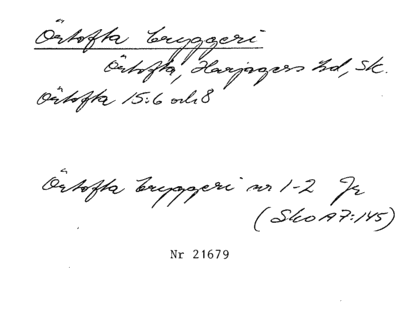 Örtofta bryggeri
Örtofta, Harjagers hd, Sk.
Örtofta 15:6 och 8
Örtofta bryggeri nr 1-2 Jr
(Sko A7:145)
Nr 21679